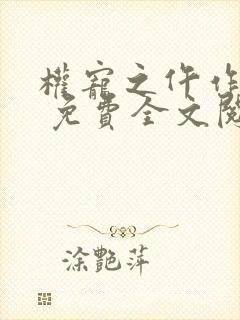 權寵之仵作
免費全文閱
涂艷萍